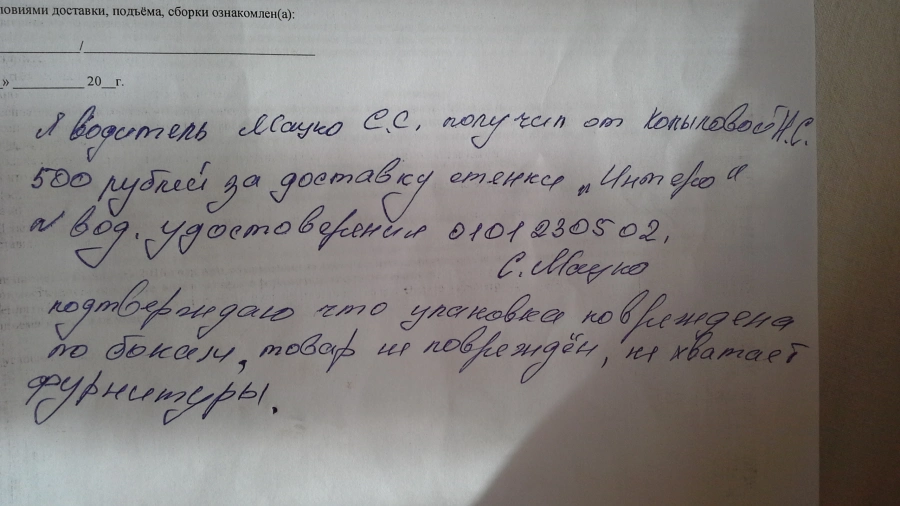 ловиями доставки, подъёма, сборки ознакомлен(а):
____________/__________________________________
_» ___________ 20__г.
Я водитель Мацко С.С. получил от Копыловой Н.С.
500 рублей за доставку стенки „Интеро"
N вод. удостоверения 0101230502.
С. Мацко
подтверждаю что упаковка повреждена
по бокам, товар не повреждён, не хватает
фурнитуры.